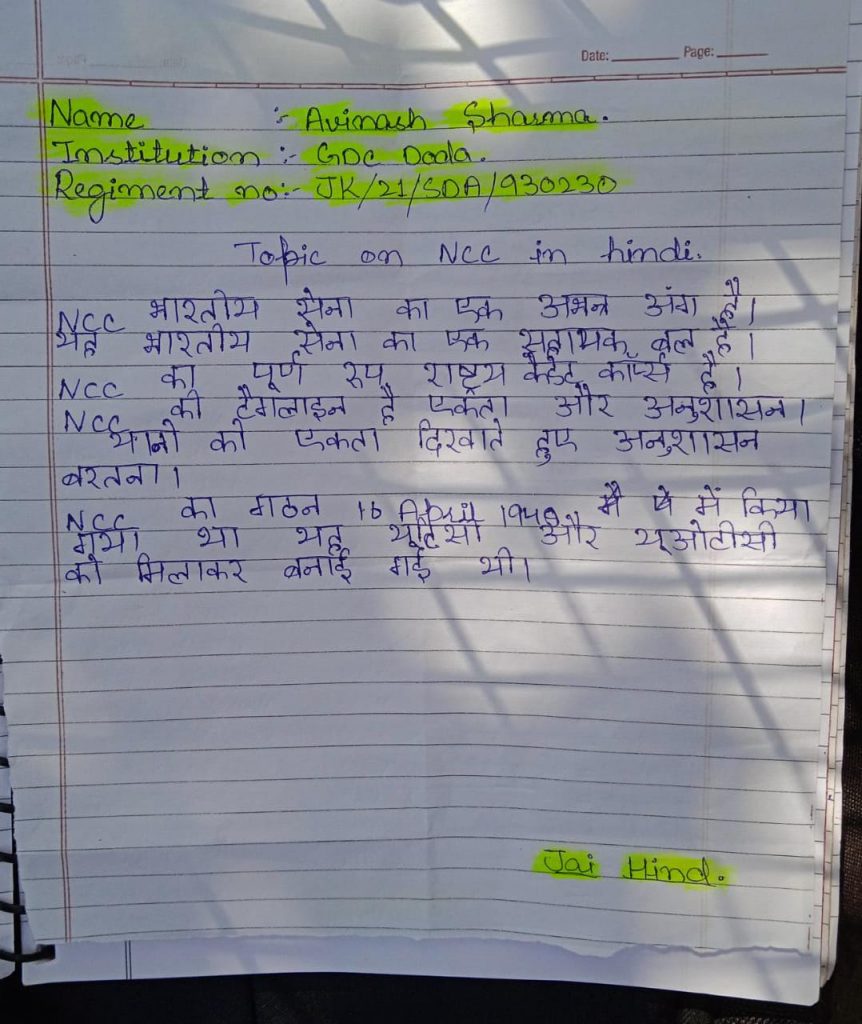 Date: Page:
Name :- Avinash Sharma.
Institution :- GDC Doda.
Regiment no:- JK/21/SDA/930230
Topic on NCC in hindi.
NCC भारतीय सेना का एक अभन्न अंग है।
यह भारतीय सेना का एक सहायक बल है।
NCC का पूर्ण रूप राष्ट्रय कैडेट कॉर्प्स है।
NCC की टैगलाइन है एकता और अनुशासन।
यानी की एकता दिखाते हुए अनुशासन
बरतना।
NCC का गठन 16 April 1948 मै में किया
गया था यह यूटिसी और यूओटीसी
को मिलाकर बनाई गई थी।
Jai Hind.